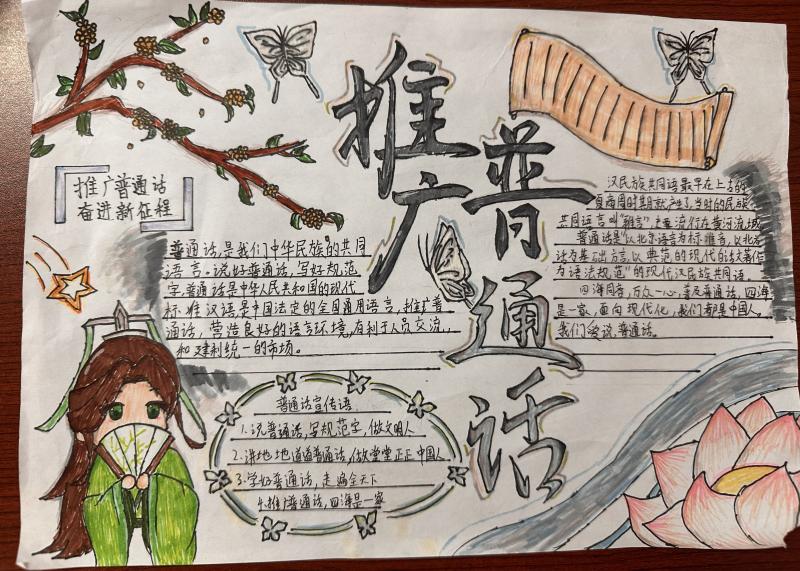 推广
普通话
推广普通话
奋进新征程
普通话,是我们中华民族的共同
语言。说好普通话,写好规范
字,普通话是中华人民共和国的现代
标准汉语是中国法定的全国通用语言,推广普
通话,营造良好的语言环境,有利于人员交流,
和建利统一的市场。
普通话宣传语
1.说普通话,写规范字,做文明人
2.讲地地道道普通话,做堂堂正正中国人
3.学好普通话,走遍全天下
4.推广普通话,四海是一家
汉民族共同语最早在上古的
夏商周时期就产生了,当时的民族
共同语言叫"雅言"主要流行在黄河流域
普通话是"以北京语言为标准音,以北方
话为基础方言,以典范的现代的话文著作
为语法规范"的现代汉民族共同语。
四海同音,万众一心,普及普通话,四海
是一家,面向现代化,我们都是中国人,
我们爱说普通话。